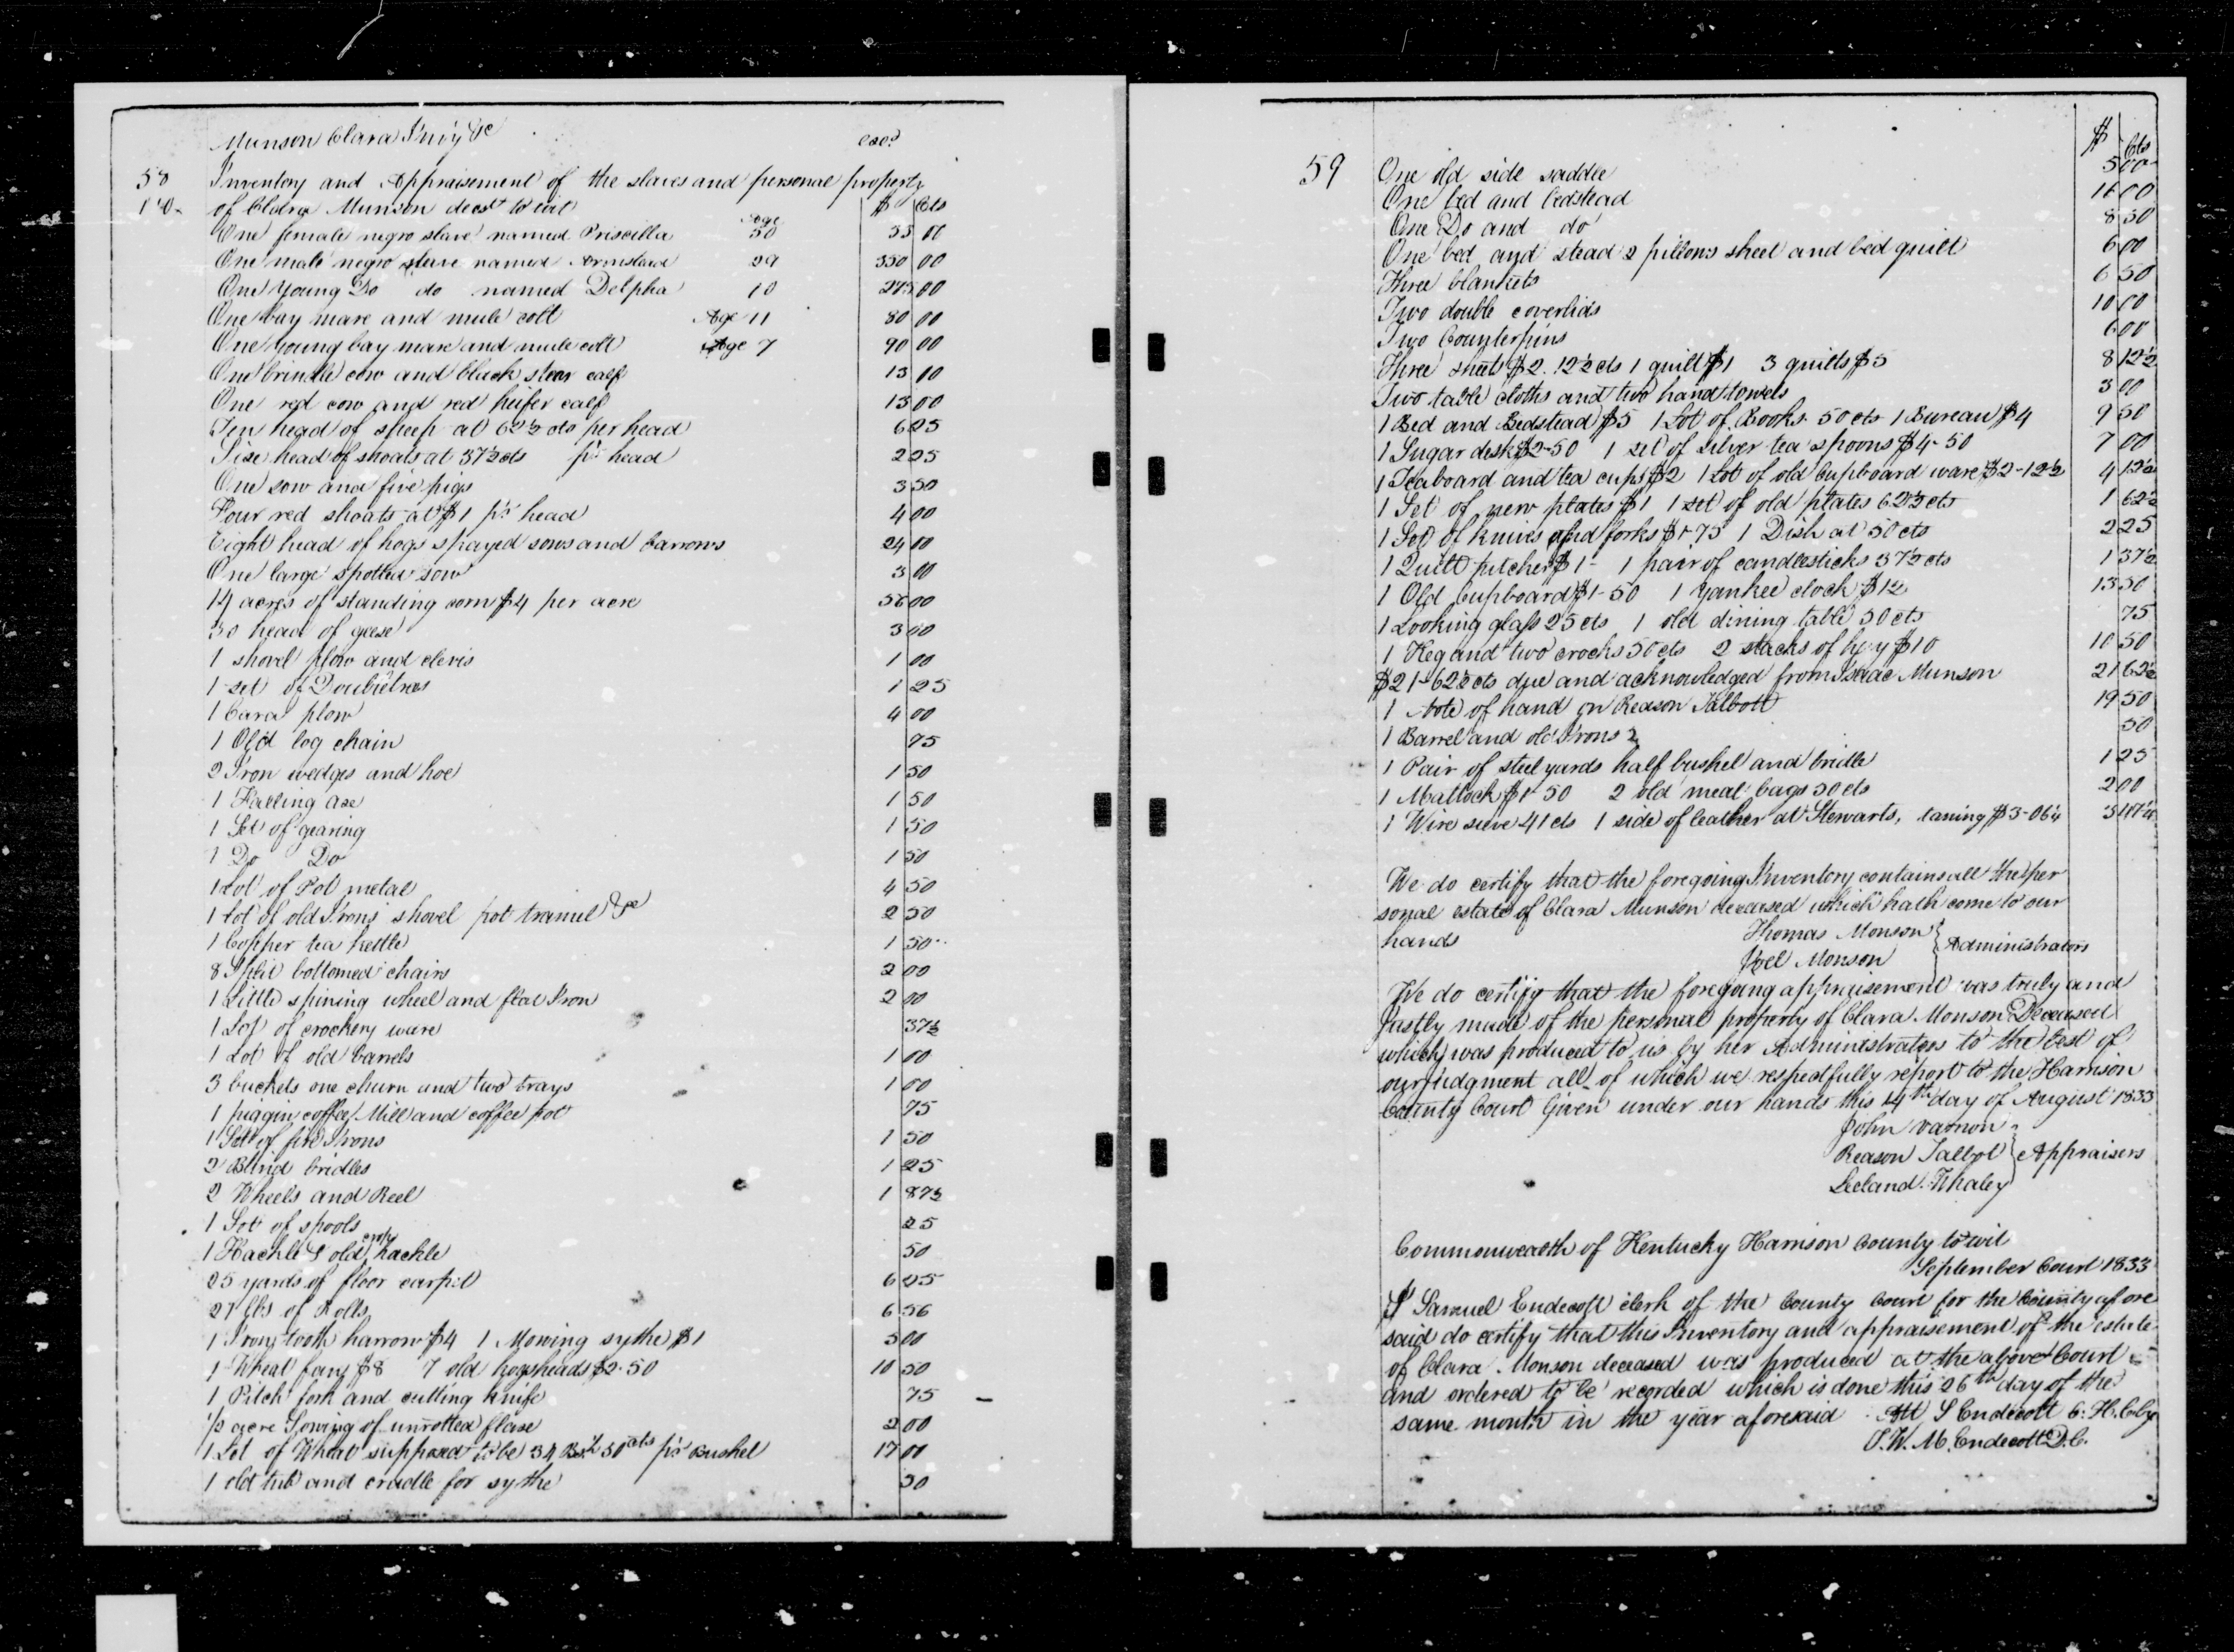 Munson Clara Inv'y &c
exd
58 Inventory and Appraisement of the slaves and personal property
of Clara Munson decst to wit $ Cts
One female negro slave named Priscilla age 50 55 00
One male negro slave named Armstead 29 350 00
One Young Do do named Delpha 10 275 00
One bay mare and mule colt Age 11 80 00
One young bay mare and mule colt Age 7 90 00
One brindle cow and black steer calf 13 00
One red cow and red heifer calf 13 00
Ten head of sheep at 62½ cts per head 6 25
Six head of shoats at 37½ cts pr head 2 25
One sow and five pigs 3 50
Four red shoats at $1 pr head 4 00
Eight head of hogs spayed sows and barrows 24 00
One large spotted sow 3 00
14 acres of standing corn $4 per acre 56 00
30 head of geese 3 00
1 shovel plow and clevis 1 00
1 set of Doubletrees 1 25
1 Cara plow 4 00
1 Old log chain 75
2 Iron wedges and hoe 1 50
1 Falling axe 1 50
1 Set of gearing 1 50
1 Do Do 1 50
1 Lot of Pot metal 4 50
1 Lot of old Irons shovel pot tramel &c 2 50
1 Copper tea kettle 1 50
8 Split bottomed chairs 2 00
1 Little spining wheel and flat Iron 2 00
1 Lot of crockery ware 37½
1 Lot of old barrels 1 00
3 buckets one churn and two trays 1 00
1 piggin coffee Mill and coffee pot 75
1 Set of fire Irons 1 50
2 Blind bridles 1 25
2 Wheels and Reel 1 87½
1 Lot of spools 25
1 Hackle & old hackle 50
25 yards of floor carpet 6 25
21 lbs of Rolls 6 56
1 Irony tooth harrow $4 1 Mowing sythe $1 5 00
1 Wheat fany $8 7 old hogsheads $2.50 10 50
1 Pitch fork and cutting knife 75
½ acre Sowing of unrotted flaxe 2 00
1 Lot of Wheat supposed to be 34 Bsh 50 cts pr Bushel 17 00
1 old tub and cradle for sythe 50
$ Cts
59 One old side saddle 5 00
One bed and bedstead 16 00
One Do and do 8 50
One bed and stead 2 pillows sheet and bed quilt 6 00
Three blankets 6 50
Two double coverlids 10 00
Two Counterpins 6 00
Three sheets $2.12½ cts 1 quilt $1 3 quilts $5 8 12½
Two table cloths and two hand towels 3 00
1 Bed and Bedstead $5 1 Lot of Books 50 cts 1 Bureau $4 9 50
1 Sugar desk $2-50 1 set of silver tea spoons $4-50 7 00
1 Teaboard and tea cups $2 1 Lot of old Cupboard ware $2-12½ 4 12½
1 Set of new plates $1 1 set of old plates 62½ cts 1 62½
1 Set of knives and forks $1-75 1 Dish at 50 cts 2 25
1 Quilt pitcher $1- 1 pair of candlesticks 37½ cts 1 37½
1 Old Cupboard $1-50 1 Yankee clock $12 13 50
1 Looking glass 25 cts 1 old dining table 50 cts 75
1 Keg and two crocks 50 cts 2 stacks of hay $10 10 50
$21-62½ cts due and acknowledged from Isaac Munson 21 62½
1 Note of hand on Reason Talbott 19 50
1 Barrel and old Irons 2 50
1 Pair of steel yards half bushel and bridle 1 25
1 Mattock $1-50 2 old meal bags 50 cts 2 00
1 Wire sieve 41 cts 1 side of leather at Stewarts, taning $3-06¼ 3 47¼
We do certify that the foregoing Inventory contains all the per
sonal estate of Clara Munson deceased which hath come to our
hands Thomas Monson
Joel Monson } Administrators
We do certify that the foregoing appraisement was truly and
Justly made of the personal property of Clara Monson Deceased
which was produced to us by her Administrators to the best of
our judgment all of which we respectfully report to the Harrison
County Court Given under our hands this 14th day of August 1833
John Varnon
Reason Talbot } Appraisers
Leeland Whaley
Commonwealth of Kentucky Harrison County towit
September Court 1833
I Samuel Endecott clerk of the County Court for the County afore
said do certify that this Inventory and appraisement of the estate
of Clara Monson deceased was produced at the above Court
and ordered to be recorded which is done this 26th day of the
same month in the year aforesaid Att S Endecott C. H. C. Cy
J. W. M. Endecott D. C.